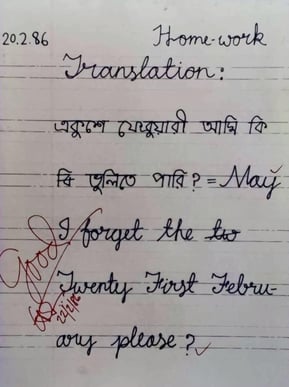 20.2.86 Home-work
Translation:
একুশে ফেব্রুয়ারী আমি কি
কি ভুলিতে পারি? = May
I forget the tw
Twenty First Febru-
ary please?
Good
22/2/86